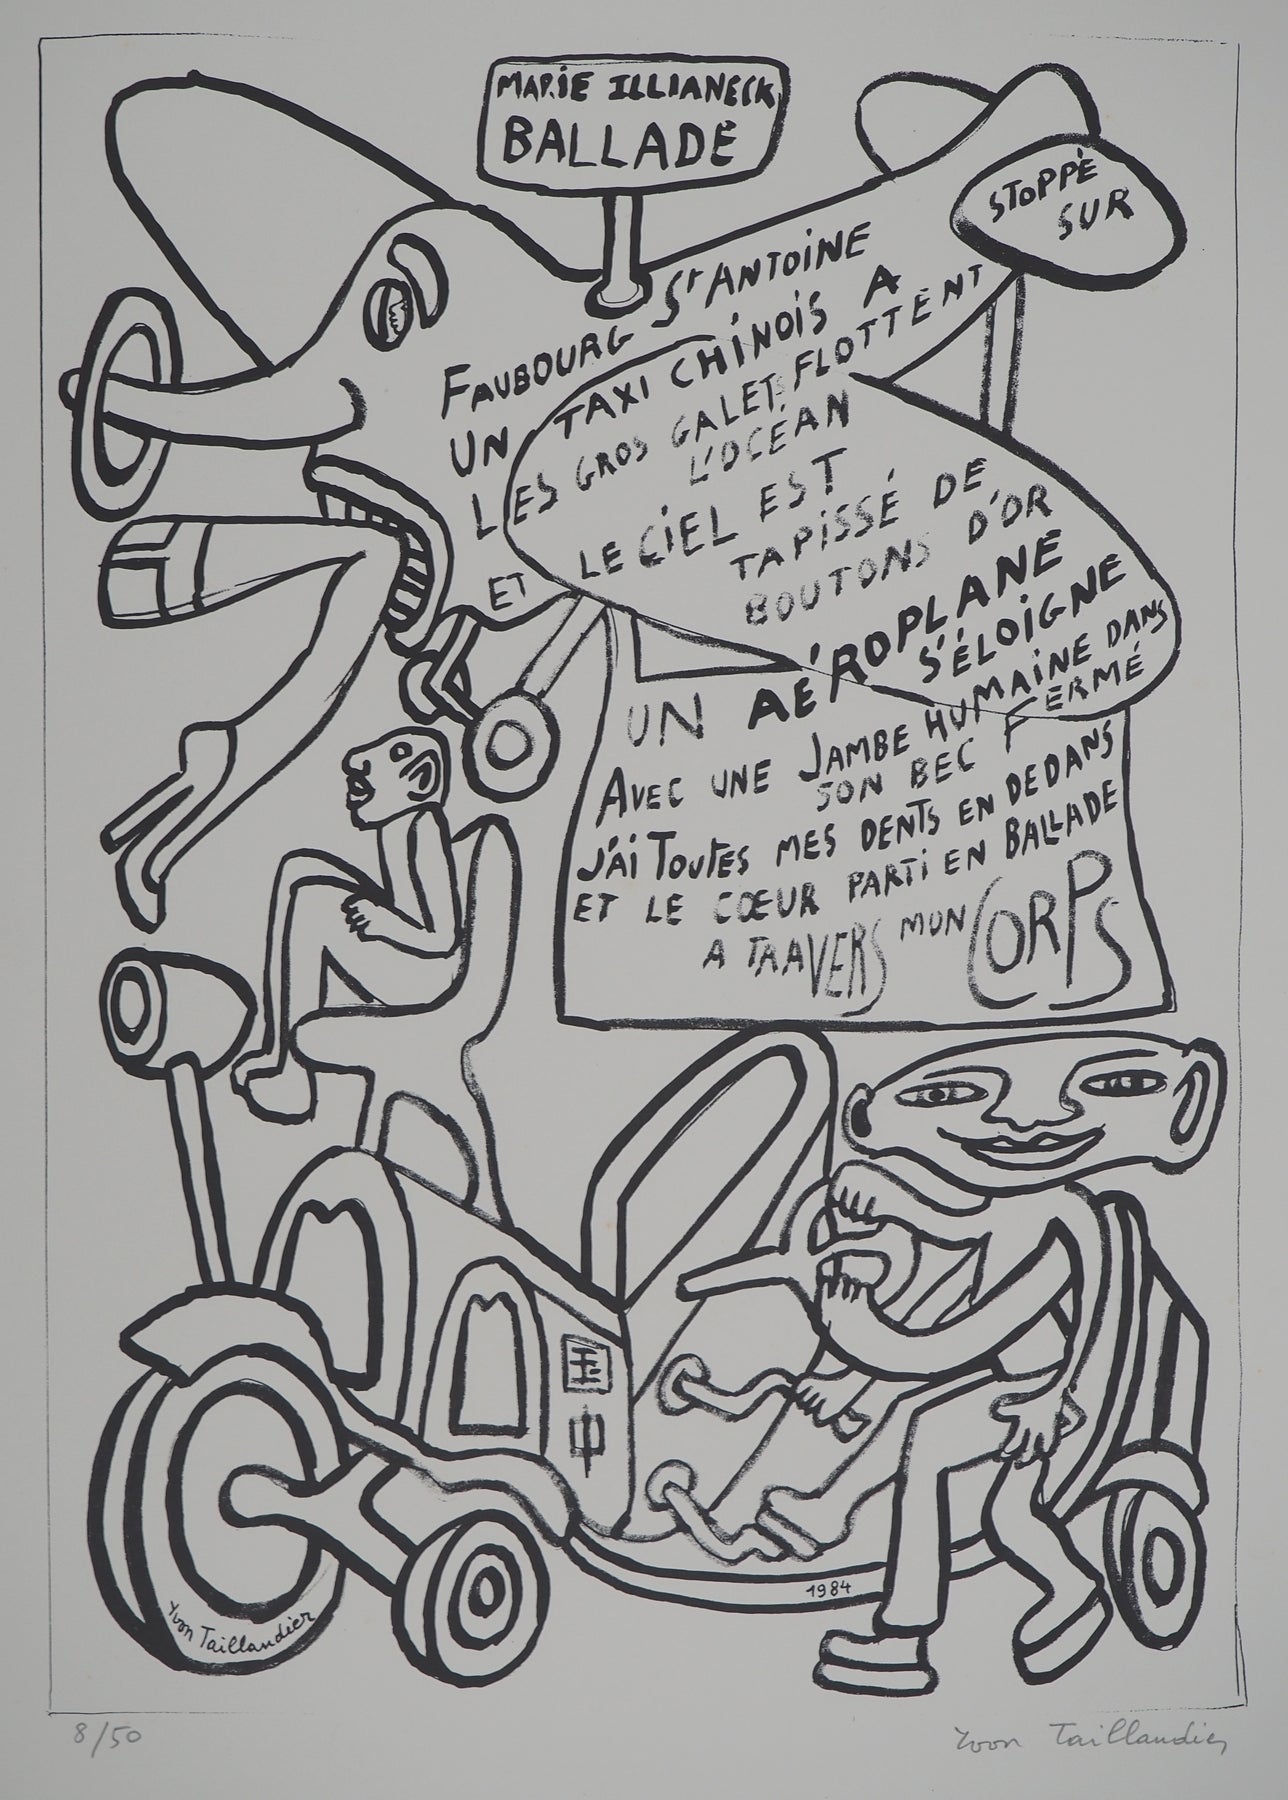 MARIE ILLIANECK
BALLADE
FAUBOURG ST ANTOINE
UN TAXI CHINOIS A
STOPPÉ
SUR
LES GROS GALETS FLOTTENT
L'OCÉAN
ET LE CIEL EST
TAPISSÉ DE
BOUTONS D'OR
UN AÉROPLANE
S'ÉLOIGNE
AVEC UNE JAMBE HUMAINE DANS
SON BEC FERMÉ
J'AI TOUTES MES DENTS EN DEDANS
ET LE CŒUR PARTI EN BALLADE
A TRAVERS MON CORPS
1984
Yvon Taillandier
8/50
Yvon Taillandier